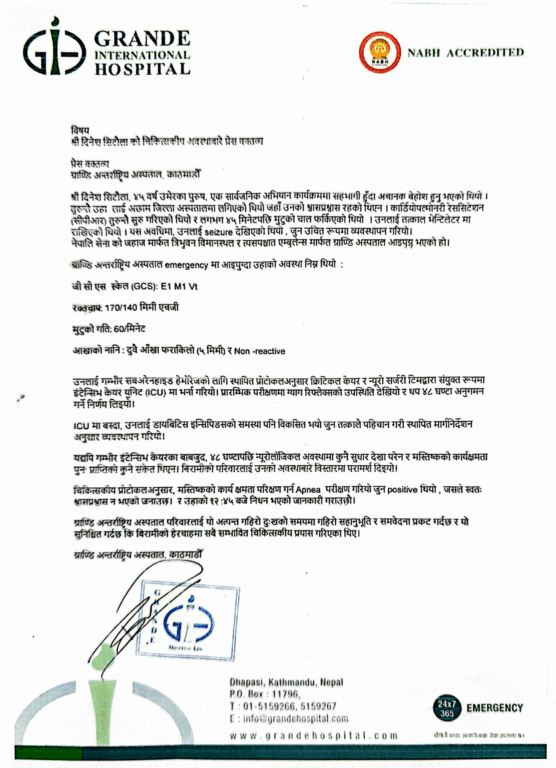 GRANDE
INTERNATIONAL
HOSPITAL
NABH
NABH ACCREDITED
विषय
श्री दिनेश सिटौला को चिकित्सकीय अवस्थाबारे प्रेस वक्तव्य
प्रेस वक्तव्य
ग्राण्डि अन्तर्राष्ट्रिय अस्पताल, काठमाडौँ
श्री दिनेश सिटौला, ४५ वर्ष उमेरका पुरुष, एक सार्वजनिक अभियान कार्यक्रममा सहभागी हुँदा अचानक बेहोश हुनु भएको थियो ।
तुरुन्तै उहा लाई अछाम जिल्ला अस्पतालमा लगिएको थियो जहाँ उनको श्वासप्रश्वास रहेको थिएन । कार्डियोपल्मोनरी रेससिटेशन
(सीपीआर) तुरुन्तै सुरु गरिएको थियो र लगभग ४५ मिनेटपछि मुटुको चाल फर्किएको थियो । उनलाई तत्काल भेन्टिलेटर मा
राखिएको थियो । यस अवधिमा, उनलाई seizure देखिएको थियो , जुन उचित रूपमा व्यवस्थापन गरियो।
नेपालि सेना को जहाज मार्फत त्रिभुवन विमानस्थल र त्यसपश्चात एम्बुलेन्स मार्फत ग्राण्डि अस्पताल आइपुग्नु भएको हो।
ग्राण्डि अन्तर्राष्ट्रिय अस्पताल emergency मा आइपुग्दा उहाको अवस्था निम्न थियो :
जी सी एस स्केल (GCS): E1 M1 Vt
रक्तचाप: 170/140 मिमी एचजी
मुटुको गति: 60/मिनेट
आखाको नानि : दुवै आँखा फराकिलो (५ मिमी) र Non -reactive
उनलाई गम्भीर सबअरेनहाइड हेमोरेजको लागि स्थापित प्रोटोकलअनुसार क्रिटिकल केयर र न्यूरो सर्जरी टिमद्वारा संयुक्त रूपमा
इंटेन्सिभ केयर युनिट (ICU) मा भर्ना गरियो। प्रारम्भिक परीक्षणमा ग्याग रिफ्लेक्सको उपस्थिति देखियो र थप ४८ घण्टा अनुगमन
गर्ने निर्णय लिइयो।
ICU मा बस्दा, उनलाई डायबिटिस इन्सिपिडसको समस्या पनि विकसित भयो जुन तत्कालै पहिचान गरी स्थापित मार्गनिर्देशन
अनुसार व्यवस्थापन गरियो।
यद्यपि गम्भीर इंटेन्सिभ केयरका बाबजुद, ४८ घण्टापछि न्यूरोलॉजिकल अवस्थामा कुनै सुधार देखा परेन र मस्तिष्कको कार्यक्षमता
पुनः प्राप्तिको कुनै संकेत थिएन। बिरामीको परिवारलाई उनको अवस्थाबारे विस्तारमा परामर्श दिइयो।
चिकित्सकीय प्रोटोकलअनुसार, मस्तिष्कको कार्य क्षमता परिक्षण गर्न Apnea परीक्षण गरियो जुन positive थियो , जसले स्वतः
श्वासप्रश्वास न भएको जनाउछ। र उहाको १२ :४५ बजे निधन भएको जानकारी गराउछौ।
ग्राण्डि अन्तर्राष्ट्रिय अस्पताल परिवारलाई यो अत्यन्त गहिरो दुःखको समयमा गहिरो सहानुभूति र समवेदना प्रकट गर्दछ र यो
सुनिश्चित गर्दछ कि बिरामीको हेरचाहमा सबै सम्भावित चिकित्सकीय प्रयास गरिएका थिए।
ग्राण्डि अन्तर्राष्ट्रिय अस्पताल, काठमाडौँ
GRANDE
Hospital
Dhapasi, Kathmandu, Nepal
P.O. Box : 11796,
T : 01-5159266, 5159267
E : info@grandehospital.com
www.grandehospital.com
24x7
365
EMERGENCY